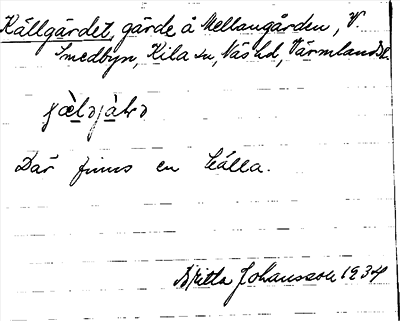 Källgärdet, gärde å Mellangården, V.
Smedbyn, Kila sn, Näs hd, Värmland
Där finns en källa.
Britta Johansson 1934